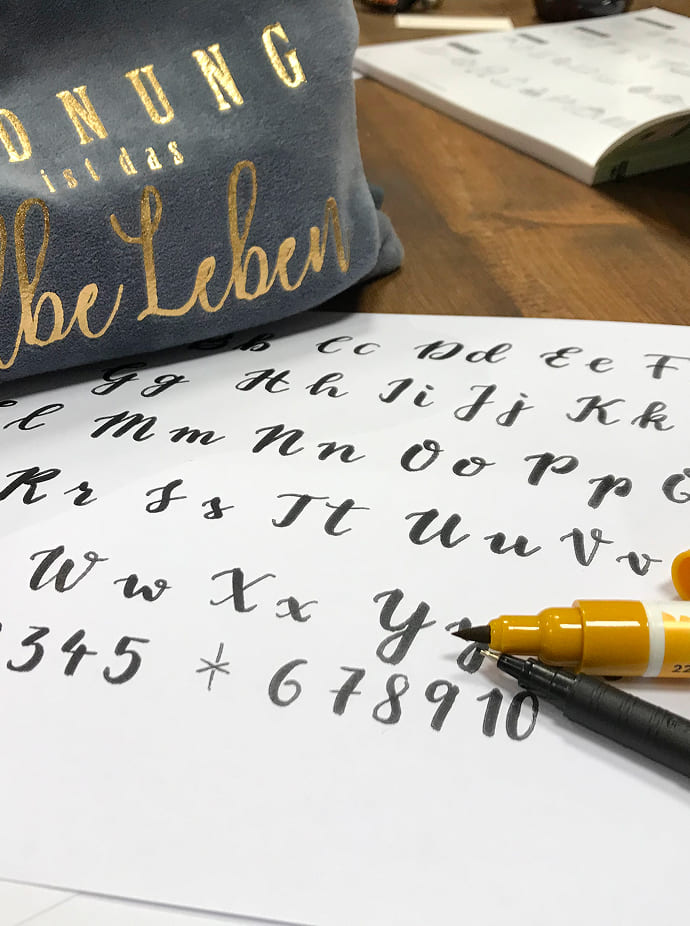 DNUNG
ist das
lbe Leben
Bb Cc Dd Ee F
Gg Hh Ii Jj Kk
l Mm Nn Oo Pp Q
Rr Ss Tt Uu Vv
Ww Xx Yy
345 * 678910
22